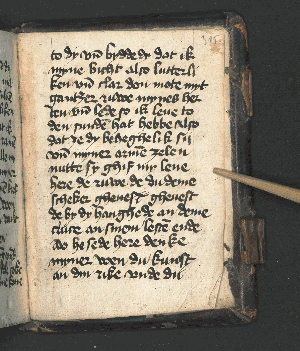 to dy vnd bydde dy dat ik
myne bicht also lutterli
ken vnd klar don mote myt
gantzer ruwe mynes her
ten vnd lede so ik leue to
den hat hebbe also
dat ik sy
vnd myner arme zelen
nutte sy ghif my leue
here de ruwe de du deme
scheker gheuest
de by dy hanghede an deme
cruce an lest ende
do he sede here denke
myner wen du kumst
an din rike vnde du